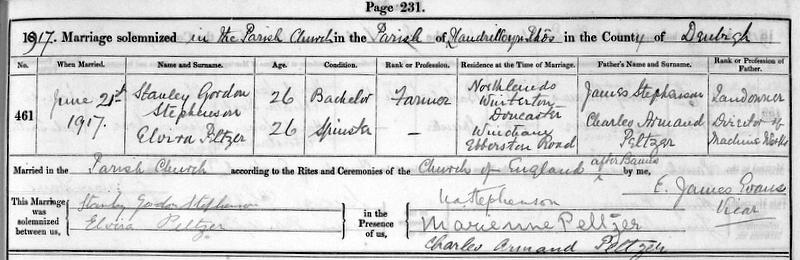 Page 231.
1917. Marriage solemnized in the Parish Church in the Parish of Llandrillo yn Rhôs in the County of Denbigh
No. When Married. Name and Surname. Age. Condition. Rank or Profession. Residence at the Time of Marriage. Father's Name and Surname. Rank or Profession of Father.
461
June 21st 1917.
Stanley Gordon Stephenson
26 Bachelor Farmer
Winterton Doncaster
James Stephenson
Landowner
Elvira Peltzer
26 Spinster —
Ebberston Road
Charles Armand Peltzer
Director of Machine Works
Married in the Parish Church according to the Rites and Ceremonies of the Church of England after Banns by me,
E. James Evans
Vicar
This Marriage was solemnized between us,
Stanley Gordon Stephenson
Elvira Peltzer
in the Presence of us,
Stephenson
Marienne Peltzer
Charles Armand Peltzer